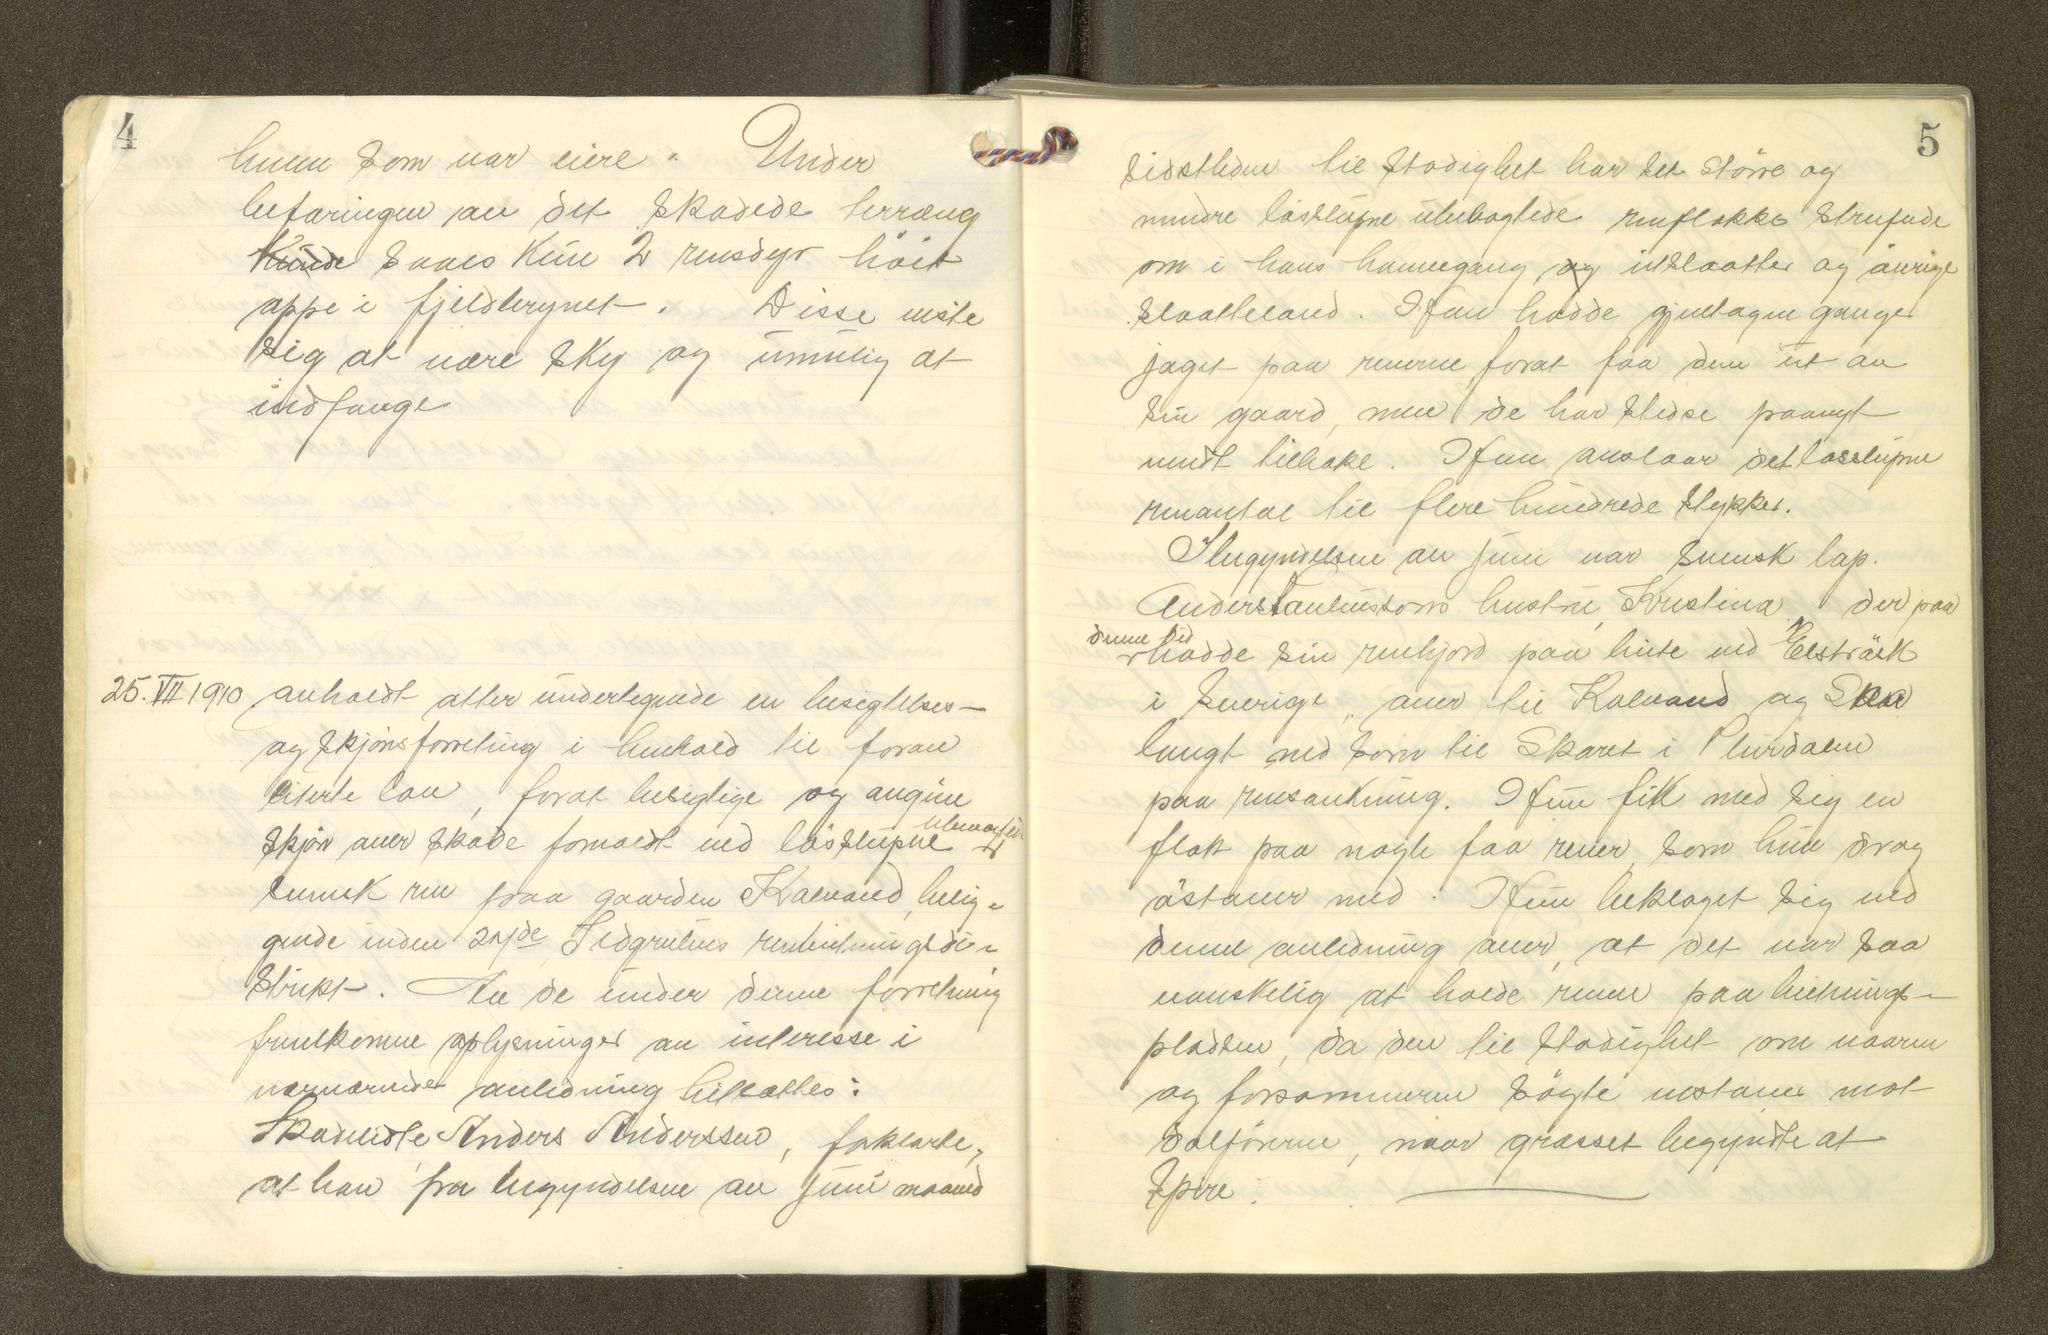 4
hvem som var eiere. Under
befaringen av det skadede terræng
kunde saaes kun 2 rensdyr höit
oppe i fjeldbrynet. Disse viste
sig at være sky og umulig at
indfange
25.VII 1910 avholdt atter undertegnede en besigtelses-
og skjönsforretning i henhold til foran
citerte lov, forat besigtige og avgive
skjön over skade forvoldt ved löslupne ubevogtede
svensk ren paa gaarden Kalvand, belig-
gende inden 2njde renbeitningsdi-
strikt. Av de under denne forretning
fremkomne oplysninger av interesse i
nærværende anledning hitsættes:
Skadelidte Anders Anderssen, forklarte,
at han fra begyndelsen av juni maaned
5
sidstleden til stadighet har set större og
mindre löslupne ubevogtede renflokke streifende
om i hans havnegang og utslaatter og övrige
slaatteland. Han hadde gjentagne ganger
jaget paa renerne forat faa dem ut av
sin gaard, men de har stedse paanyt
vendt tilbake. Han anslaar det löslupne
renantal til flere hundrede stykker.
I begyndelsen av juni var svensk lap.
Anders hustru, Kristina, der paa
denne tid
hadde sin renhjord paa beite ved
i Sverige, over til Kalvand og saa
langt ned som til Skaret i Plurdalen
paa rensankning. Hun fik med sig en
flok paa nogle faa rener som hun drog
östover med. Hun beklaget sig ved
denne anledning over, at det var saa
vanskelig at holde renen paa beitnings-
pladsen, da den til stadighet om vaaren
og forsommeren sögte vestover mot
dalförene, naar græsset begyndte at
spire.